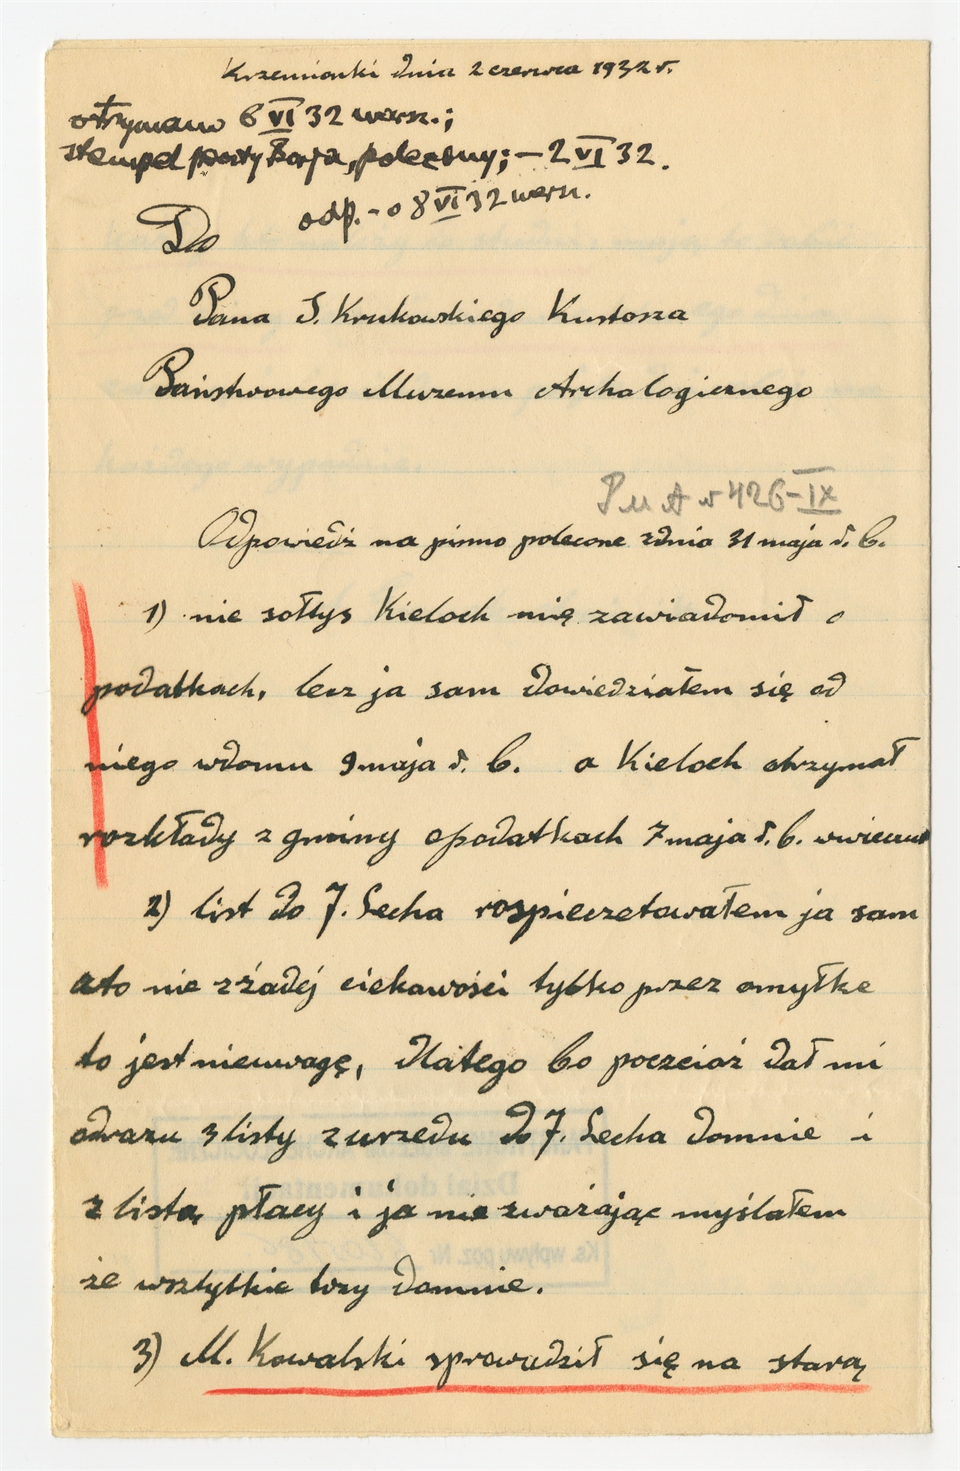 Krzemionki dnia 2 czerwca 1932 r.
otrzymano 6 VI 32 warsz.;
stempel poczty Borja, polecony; – 2 VI 32.
odp. – o 8 VI 32 warsz.
Do
Pana S. Krukowskiego Kustosza
Państwowego Muzeum Archalogicznego
PMA 426-IX
Odpowiedź na pismo polecone zdnia 31 maja r. b.
1) nie sołtys Kieloch mię zawiadomił o
podatkach, lecz ja sam dowiedziałem się od
niego wdomu 9 maja r. b. a Kieloch otrzymał
rozkłady z gminy opodatkach 7 maja r. b. wwieczur
2) list do J. Lecha rospieczetowałem ja sam
ato nie zżadej ciekawości tylko przez omyłke
to jest nieuwagę, dlatego bo poczciaż dał mi
odrazu 3 listy zurzedu do J. Lecha domnie i
z listą płacy i ja nie zważając myślałem
że wsztytkie trzy domnie.
3) M. Kowalski sprowadził się na starą
Ks. wpływu poz. Nr